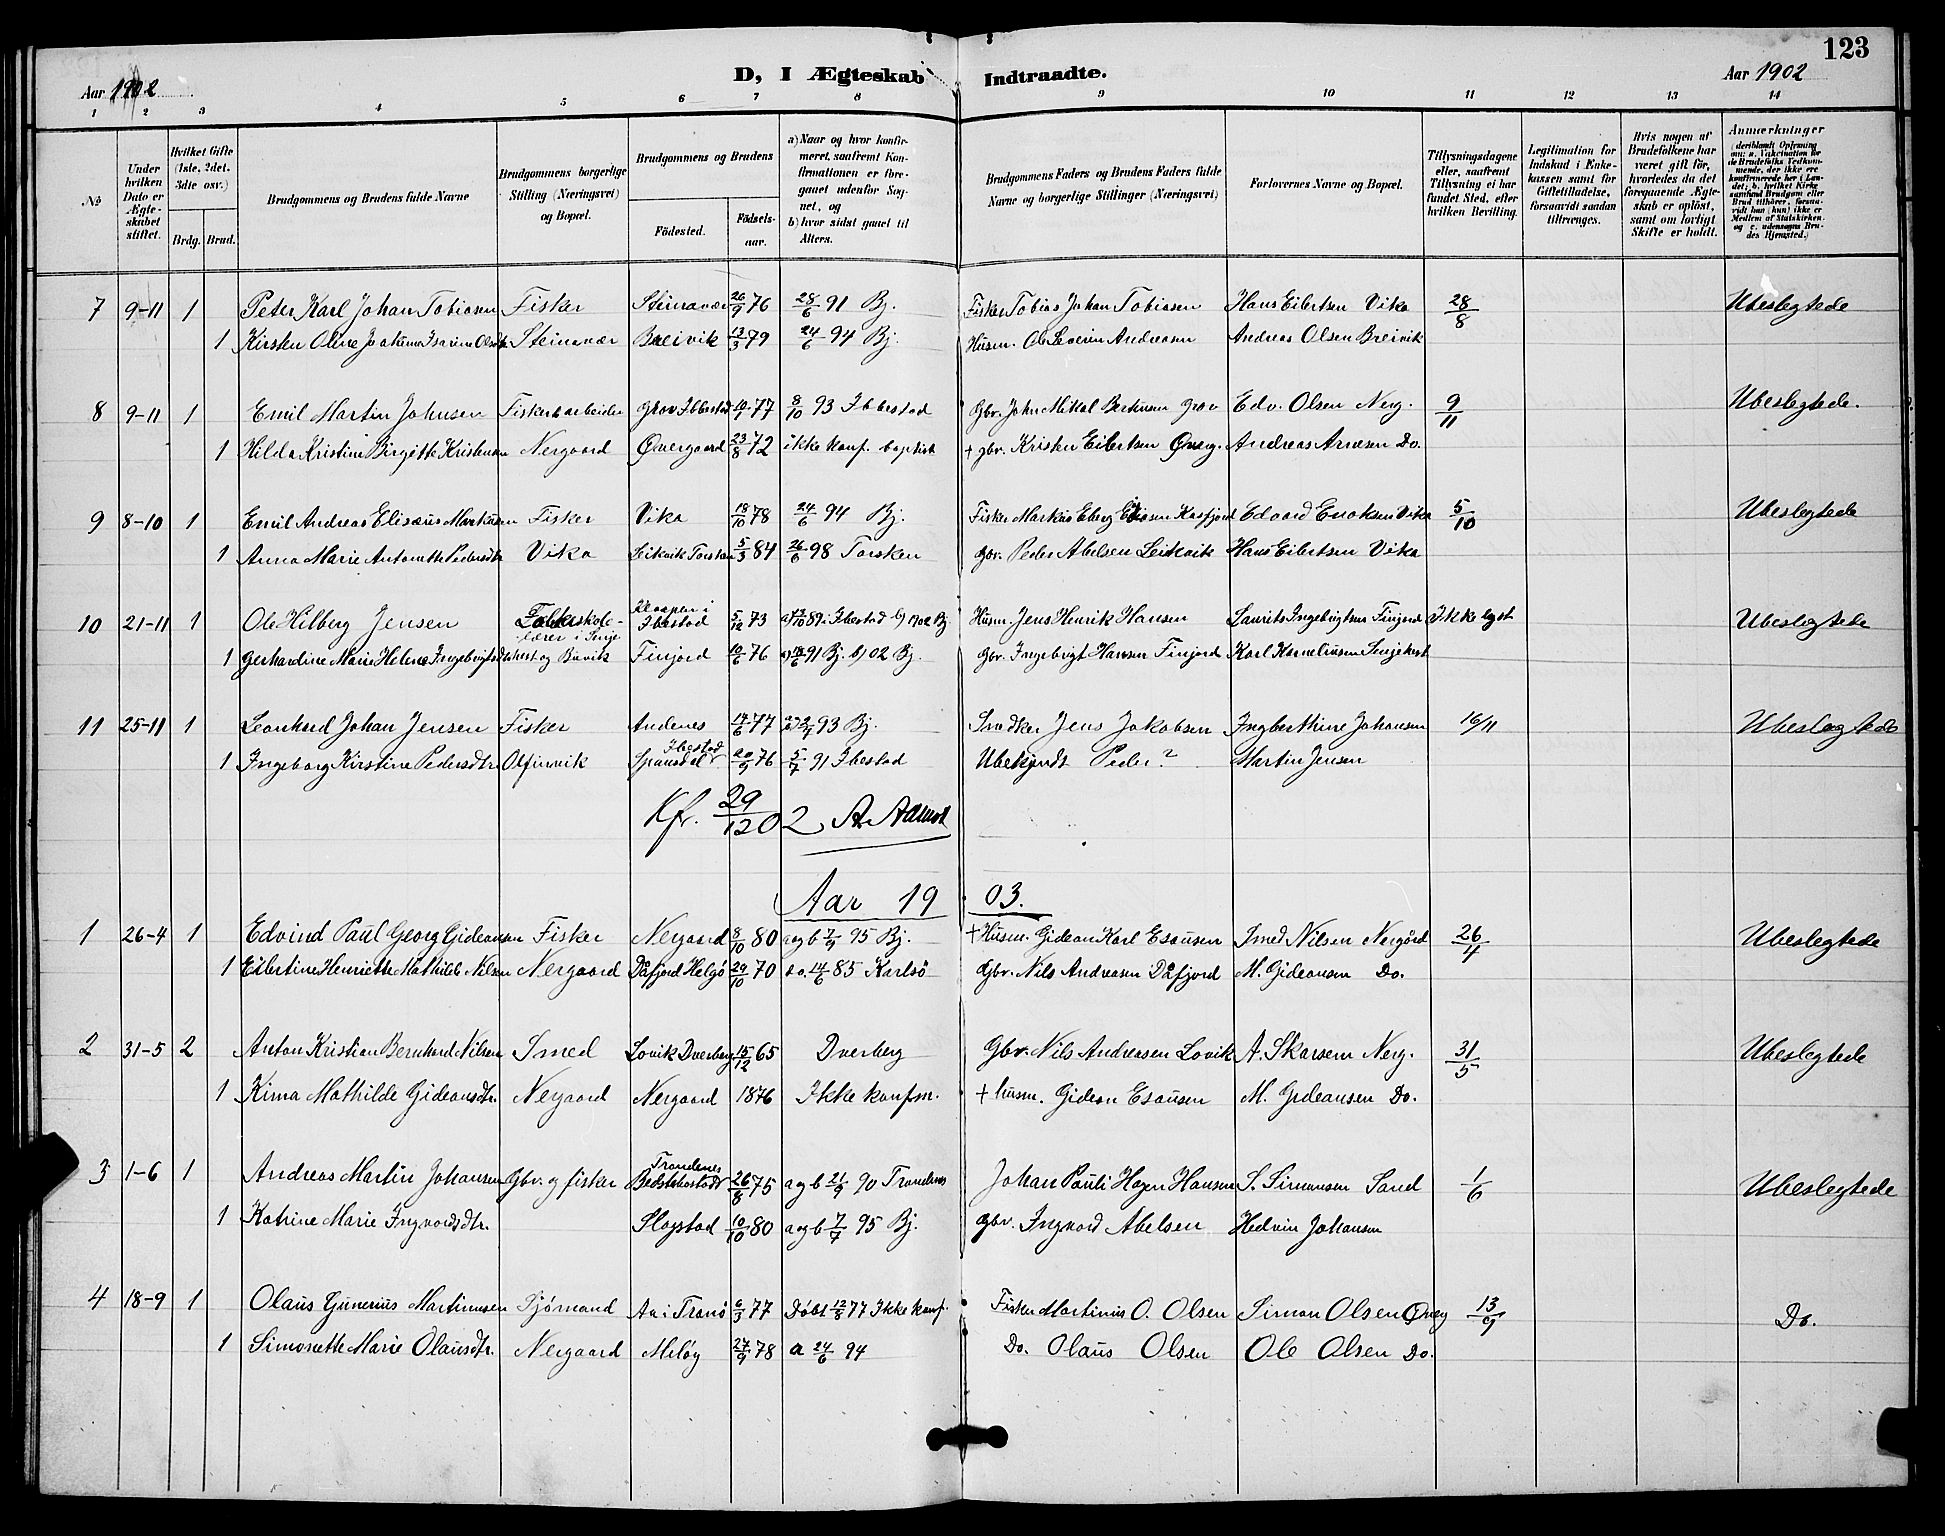 123
Aar 1902 D, I Ægteskab Indtraadte. Aar 1902
1 2 3 4 5 6 7 8 9 10 11 12 13 14
No
Under hvilken Dato er Ægteskabet stiftet.
Hvilket Gifte (1ste, 2det. 3die osv.)
Brdg. Brud.
Brudgommens og Brudens fulde Navne
Brudgommens borgerlige Stilling (Næringsvei) og Bopæl.
Brudgommens og Brudens
Födested. Födselsaar.
a) Naar og hvor konfirmeret, saafremt Konfirmationen er foregaaet udenfor Sognet, og
b) hvor sidst gaaet til Alters.
Brudgommens Faders og Brudens Faders fulde Navne og borgerlige Stillinger (Næringsvei)
Forlovernes Navne og Bopæl.
Tillysningsdagene eller, saafremt Tillysning ei har fundet Sted, efter hvilken Bevilling.
Legitimation for Indskud i Enkekassen samt for Giftetilladelse, forsaavidt saadan tiltrænges.
Hvis nogen af Brudefolkene har været gift för, hvorledes da det foregaaende Ægteskab er oplöst, samt om lovligt Skifte er holdt.
Anmærkninger
7 9-11 1 Peter Karl Johan Tobiasen Fisker Steinavær 26/9 76 28/6 91 Bj. Fisker Tobias Johan Tobiasen Hans Eilertsen Vika 28/8 Ubeslegtede
1 Kirsten Oline Joakime Isarine Olsdtr Steinavær Breivik 13/3 79 24/6 94 Bj. Husm. Ole Severin Andreasen Andreas Olsen Breivik
8 9-11 1 Emil Martin Johnsen Fisker & arbeider Grov Ibbestad 77 8/10 93 Ibbestad Gbr. John Mikal Berntsen Grov Edv. Olsen Nerg. 9/11 Ubeslegtede.
1 Hilda Kristine Birgitte Kristensen Nergaard Øvergaard 23/8 72 ikke konf. baptist + gbr. Kristen Eilertsen Øverg. Andreas Arnesen Do.
9 8-10 1 Emil Andreas Elisæus Markusen Fisker Vika 18/10 78 24/6 94 Bj. Fisker Markus Eberg Kasfjord Edvard Enoksen Vika 5/10 Ubeslegtede
1 Anna Marie Antonette Pedersdtr Vika Leikvik Torsken 5/3 84 26/6 98 Torsken Gbr. Peder Abelsen Leikvik Hans Eilertsen Vika
10 21-11 1 Ole Hilberg Jensen Folkeskolelærer i Senje Ibestad 5/12 73 Ibestad b) 1902 Bj Husm. Jens Henrik Hansen Laurits Ingebrigtsen Finjord Ikke lyst Ubeslegtede
1 Gerhardine Marie Helene Ingebrigtsdtr hest og Buvik Finjord 10/6 76 91 Bj. b) 02 Bj. Gbr. Ingebrigt Hansen Finjord Karl Korneliussen Senjehest
11 25-11 1 Leonhard Johan Jensen Fisker Andenes 14/6 77 93 Bj. Snedker Jens Jakobsen Ingberthine Johansen 16/11 Ubeslegtede
1 Ingeborg Kirstine Pedersdtr. Olfinvik Spansdal Ibestad 20/9 76 5/7 91 Ibestad Ubekjendt Peder? Martin Jensen
Kfr. 29/12 02 A.
Aar 1903.
1 26-4 1 Edvind Paul Georg Gideonsen Fisker Nergaard 8/10 80 a og b 7/7 95 Bj. + Husm. Gideon Karl Esausen Smed Nilsen Nergård 26/4 Ubeslegtede
1 Eilertine Henriette Mathilde Nilsen Nergaard Dåfjord Helgö 29/10 70 14/6 85 Karlsö Gbr. Nils Andreasen Dåfjord M. Gideonsen Do.
2 31-5 2 Anton Kristian Bernhard Nilsen Smed Lovik Dverberg 15/12 65 Dverberg Gbr. Nils Andreasen Lovik A. Skarsem Nerg. 31/5 Ubeslegtede
1 Kima Mathilde Gideonsdtr. Nergaard Nergaard 1876 Ikke konfm. + husm. Gideon Esausen M. Gideonsen Do.
3 1-6 1 Andreas Martin Johansen Gbr. og fisker Trondenes 26/6 75 a og b 21/9 90 Trondenes Johan Pauli Hagen Hansen S. Simonsen Sand 1/6 Ubeslegtede
1 Katrine Marie Ingvordsdtr. Slogstad 10/10 80 a og b 7/7 95 Bj. Gbr. Ingvord Abelsen Hedvin Johansen
4 18-9 1 Olaus Gunerius Martinusen Sjømand Aa i Tranö 6/3 77 Døbt 12/8 77 Ikke konf. Fisker Martinus O. Olsen Simon Olsen Øverg 13/9 Do.
1 Simonette Marie Olausdtr. Nergaard Meløy 27/9 78 a 24/6 94 Do. Olaus Olsen Ole Olsen Do.